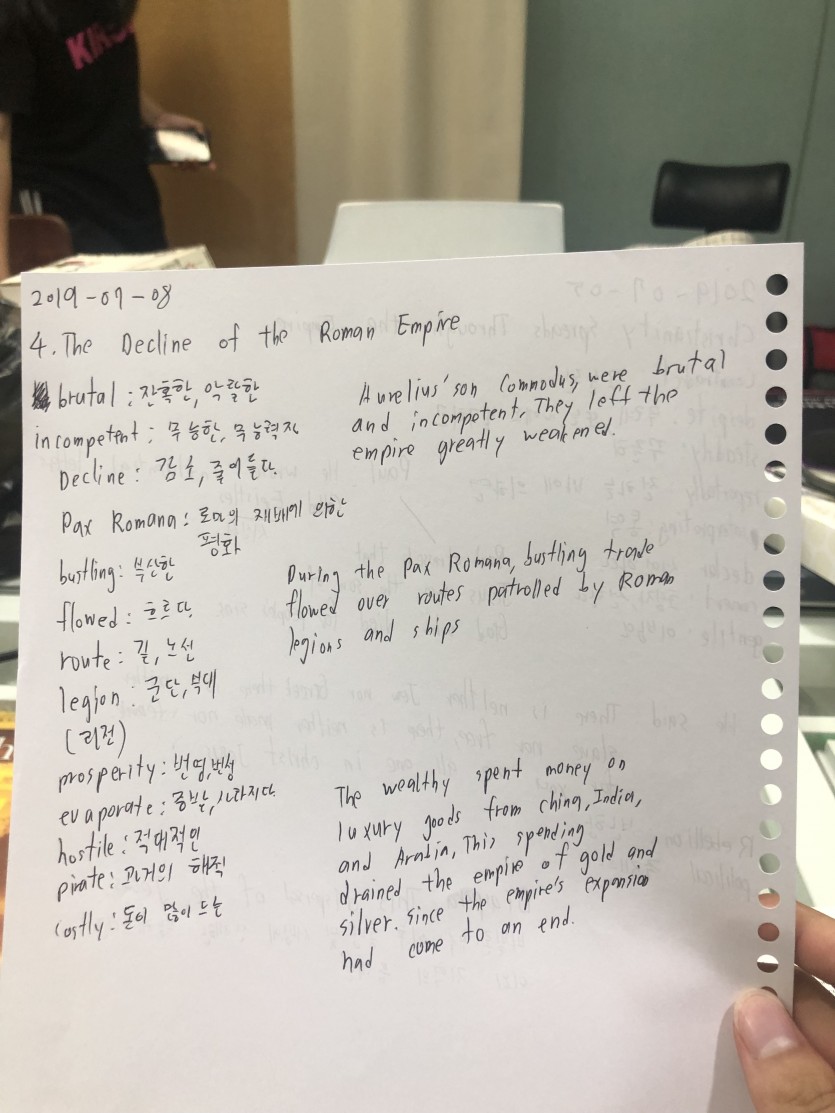 KIR
2019-07-08
4. The Decline of the Roman Empire
brutal : 잔혹한, 악랄한
incompetent : 무능한, 무능력자
Decline : 감소, 줄어들다.
Pax Romana : 로마의 지배에 의한
평화
bustling : 부산한
flowed : 흐르다.
route : 길, 노선
legion : 군단, 부대
(리전)
prosperity : 번영, 번성
evaporate : 증발, 사라지다.
hostile : 적대적인
pirate : 과거의 해적
costly : 돈이 많이 드는
Aurelius' son Commodus, were brutal
and incompotent, They left the
empire greatly weakened.
During the Pax Romana, bustling trade
flowed over routes patrolled by Roman
legions and ships
The wealthy spent money on
luxury goods from china, India,
and Arabia, This spending
drained the empire of gold and
silver. since the empire's expansion
had come to an end.